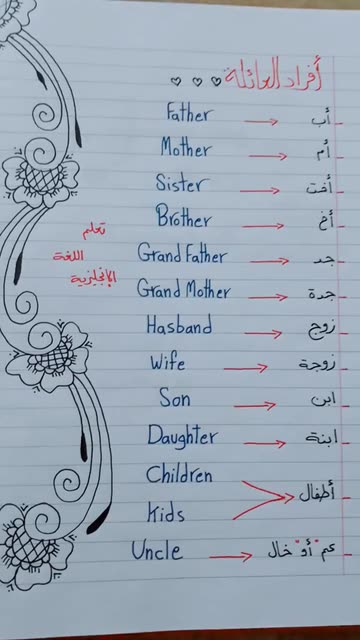 أفراد العائلة
Father → أب
Mother → أم
Sister → أخت
Brother → أخ
Grand Father → جد
Grand Mother → جدة
Hasband → زوج
Wife → زوجة
Son → ابن
Daughter → ابنة
Children
Kids → أطفال
Uncle → عم "أو" خال
تعلم
اللغة
الإنجليزية